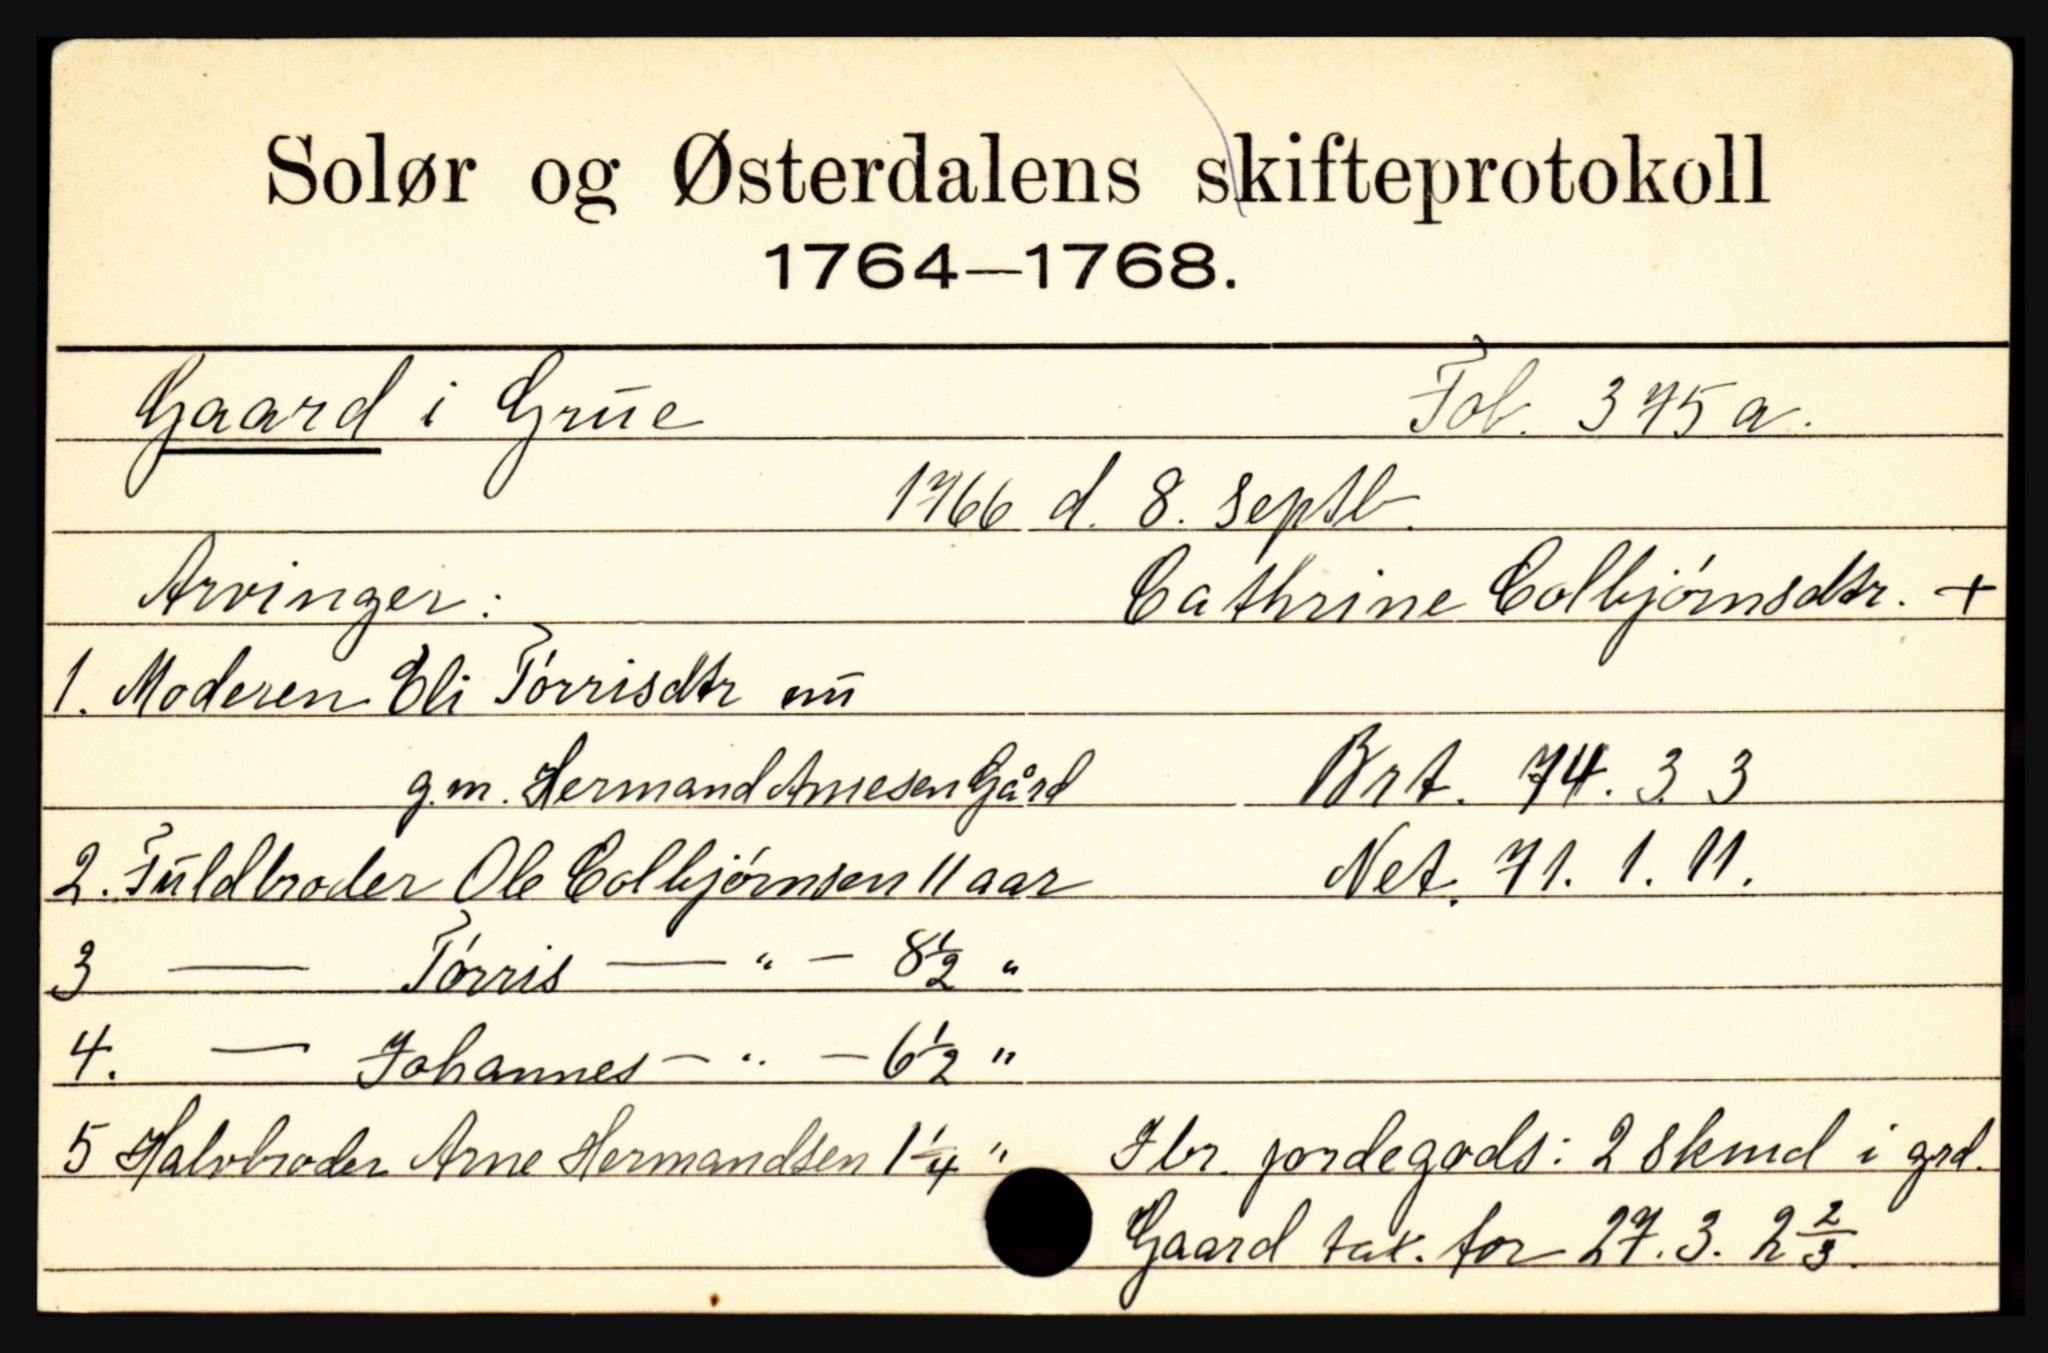 Solør og Østerdalens skifteprotokoll
1764—1768.
Gaard i Grūe Fol. 375 a.
1766 d. 8. Septb.
Arvinger: Cathrine Colbjórnsdtr. +
1. Moderen Eli Tórrisdtr nū
g.m. Hermand Arnesen Gård Brt. 74. 3. 3
2. Fūldbroder Ole Colbjórnsen 11 aar Net. 71. 1. 11.
3 — Tórris — " — 8 1/2 "
4. — Johannes — " — 6 1/2 "
5 Halvbroder Arne Hermandsen 1 1/4 " Ibr. jordegods: 2 Skind i grd.
Gaard tax. for 27. 3. 2 2/3.